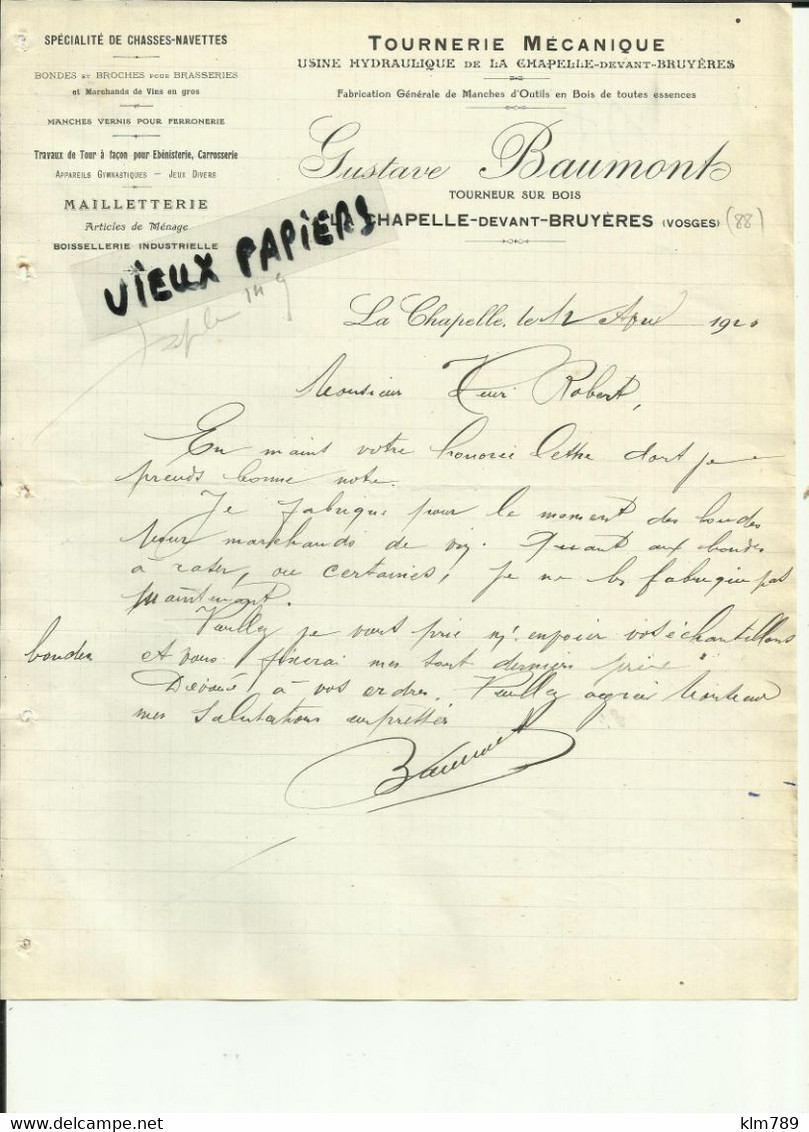 SPÉCIALITÉ DE CHASSES-NAVETTES
BONDES ET BROCHES POUR BRASSERIES
et Marchands de Vins en gros
MANCHES VERNIS POUR FERRONERIE
Travaux de Tour à façon pour Ebénisterie, Carrosserie
APPAREILS GYMNASTIQUES — JEUX DIVERS
MAILLETTERIE
Articles de Ménage
BOISSELLERIE INDUSTRIELLE
TOURNERIE MÉCANIQUE
USINE HYDRAULIQUE DE LA CHAPELLE-DEVANT-BRUYÈRES
Fabrication Générale de Manches d'Outils en Bois de toutes essences
Gustave Baumont
TOURNEUR SUR BOIS
LA CHAPELLE-DEVANT-BRUYÈRES (VOSGES) (88)
VIEUX PAPIERS
La Chapelle, le 12 1920
Monsieur Henri Robert,
En maint votre honorée lettre dont je
prends bonne note.
Je fabrique pour le moment des bondes
pour marchands de vin. Quant aux bondes
à raser, ou certaines, je ne les fabrique pas
maintenant.
Veuillez je vous prie m'envoier vos échantillons
bondes
et vous fixerai mes tout derniers prix.
Dévoué à vos ordres. Veuillez agréer Monsieur
mes salutations empressées
Baumont
klm789